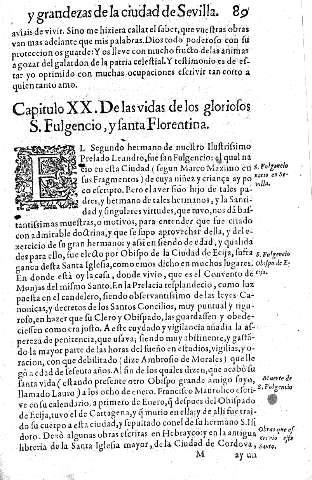 y grandezas de la ciudad de Sevilla. 89
aviais de vivir. Sino me hiziera callar el saber, que vuestras obras
van mas adelante que mis palabras. Dios todo poderoso con su
proteccion os guarde: Y os lleve con mucho fructo de las animas
a gozar del galardon de la patria celestial. Y testimonio es de es-
tar yo optimido con muchas ocupaciones escrivir tan corto a
quien tanto amo.
Capitulo XX. De las vidas de los gloriosos
S. Fulgencio, y santa Florentina.
EL Segundo hermano de nuestro Ilustrissimo
Prelado Leandro, fue san Fulgencio: el qual na
cio en esta Ciudad (segun Marco Maximo en
sus Fragmentos) de cuya niñez y criança ay po
co escripto. Pero el aver sido hijo de tales pa-
dres, y hermano de tales hermanos, y la Santi-
dad y singulares virtudes, que tuvo, nos dà bas-
S. Fulgencio
nacio en Se-
villa.
tantissimas muestras, o motivos, para entender que fue criado
con admirable doctrina, y que se supo aprovechar della, y del e-
xercicio de su gran hermano: y assi en siendo de edad, y qualida
des para ello, fue electo por Obispo de la Ciudad de Ecija, sufra
ganea desta Santa Iglesia, como emos dicho en muchos lugares.
En donde està oy la casa, donde vivio, que es el Convento de
Monjas del mismo Santo. En la Prelacia resplandecio, como luz
puesta en el candelero, siendo observantissimo de las leyes Ca-
nonicas, y decretos de los Santos Concilios, muy puntual y rigu-
roso, en hazer que su Clero y Obispado, las guardassen y obede-
ciessen como era justo. A este cuydado y vigilancia añadia la as-
pereza de penitencia, que usava; siendo muy abstinente, y gastã-
do la mayor parte de las horas del sueño en estudios, vigilias, y o-
racion, con que debilitado (dize Ambrosio de Morales) que lle
gò a edad de sesenta años. Al fin de los quales dizen, que acabò su
santa vida (estando presente otro Obispo grande amigo suyo,
llamado Lauro) a los ocho de enero. Francisco Maurolico escri-
ve en su calendario, a primero de Enero, q̃ despues del Obispado
de Ecija, tuvo el de Cartagena, y q̃ murio en ella; y de alli fue trai-
do su cuerpo a esta ciudad, y sepultado con el de su hermano S. Isi
doro. Dexò algunas obras escritas en Hebrayco: y en la antigua
libreria de la Santa Iglesia mayor, de la Ciudad de Cordova,
S. Fulgencio
Obispo de E-
cija.
Muerte de
S. Fulgencio
Obras que es
crivio este
Santo.
M ay un